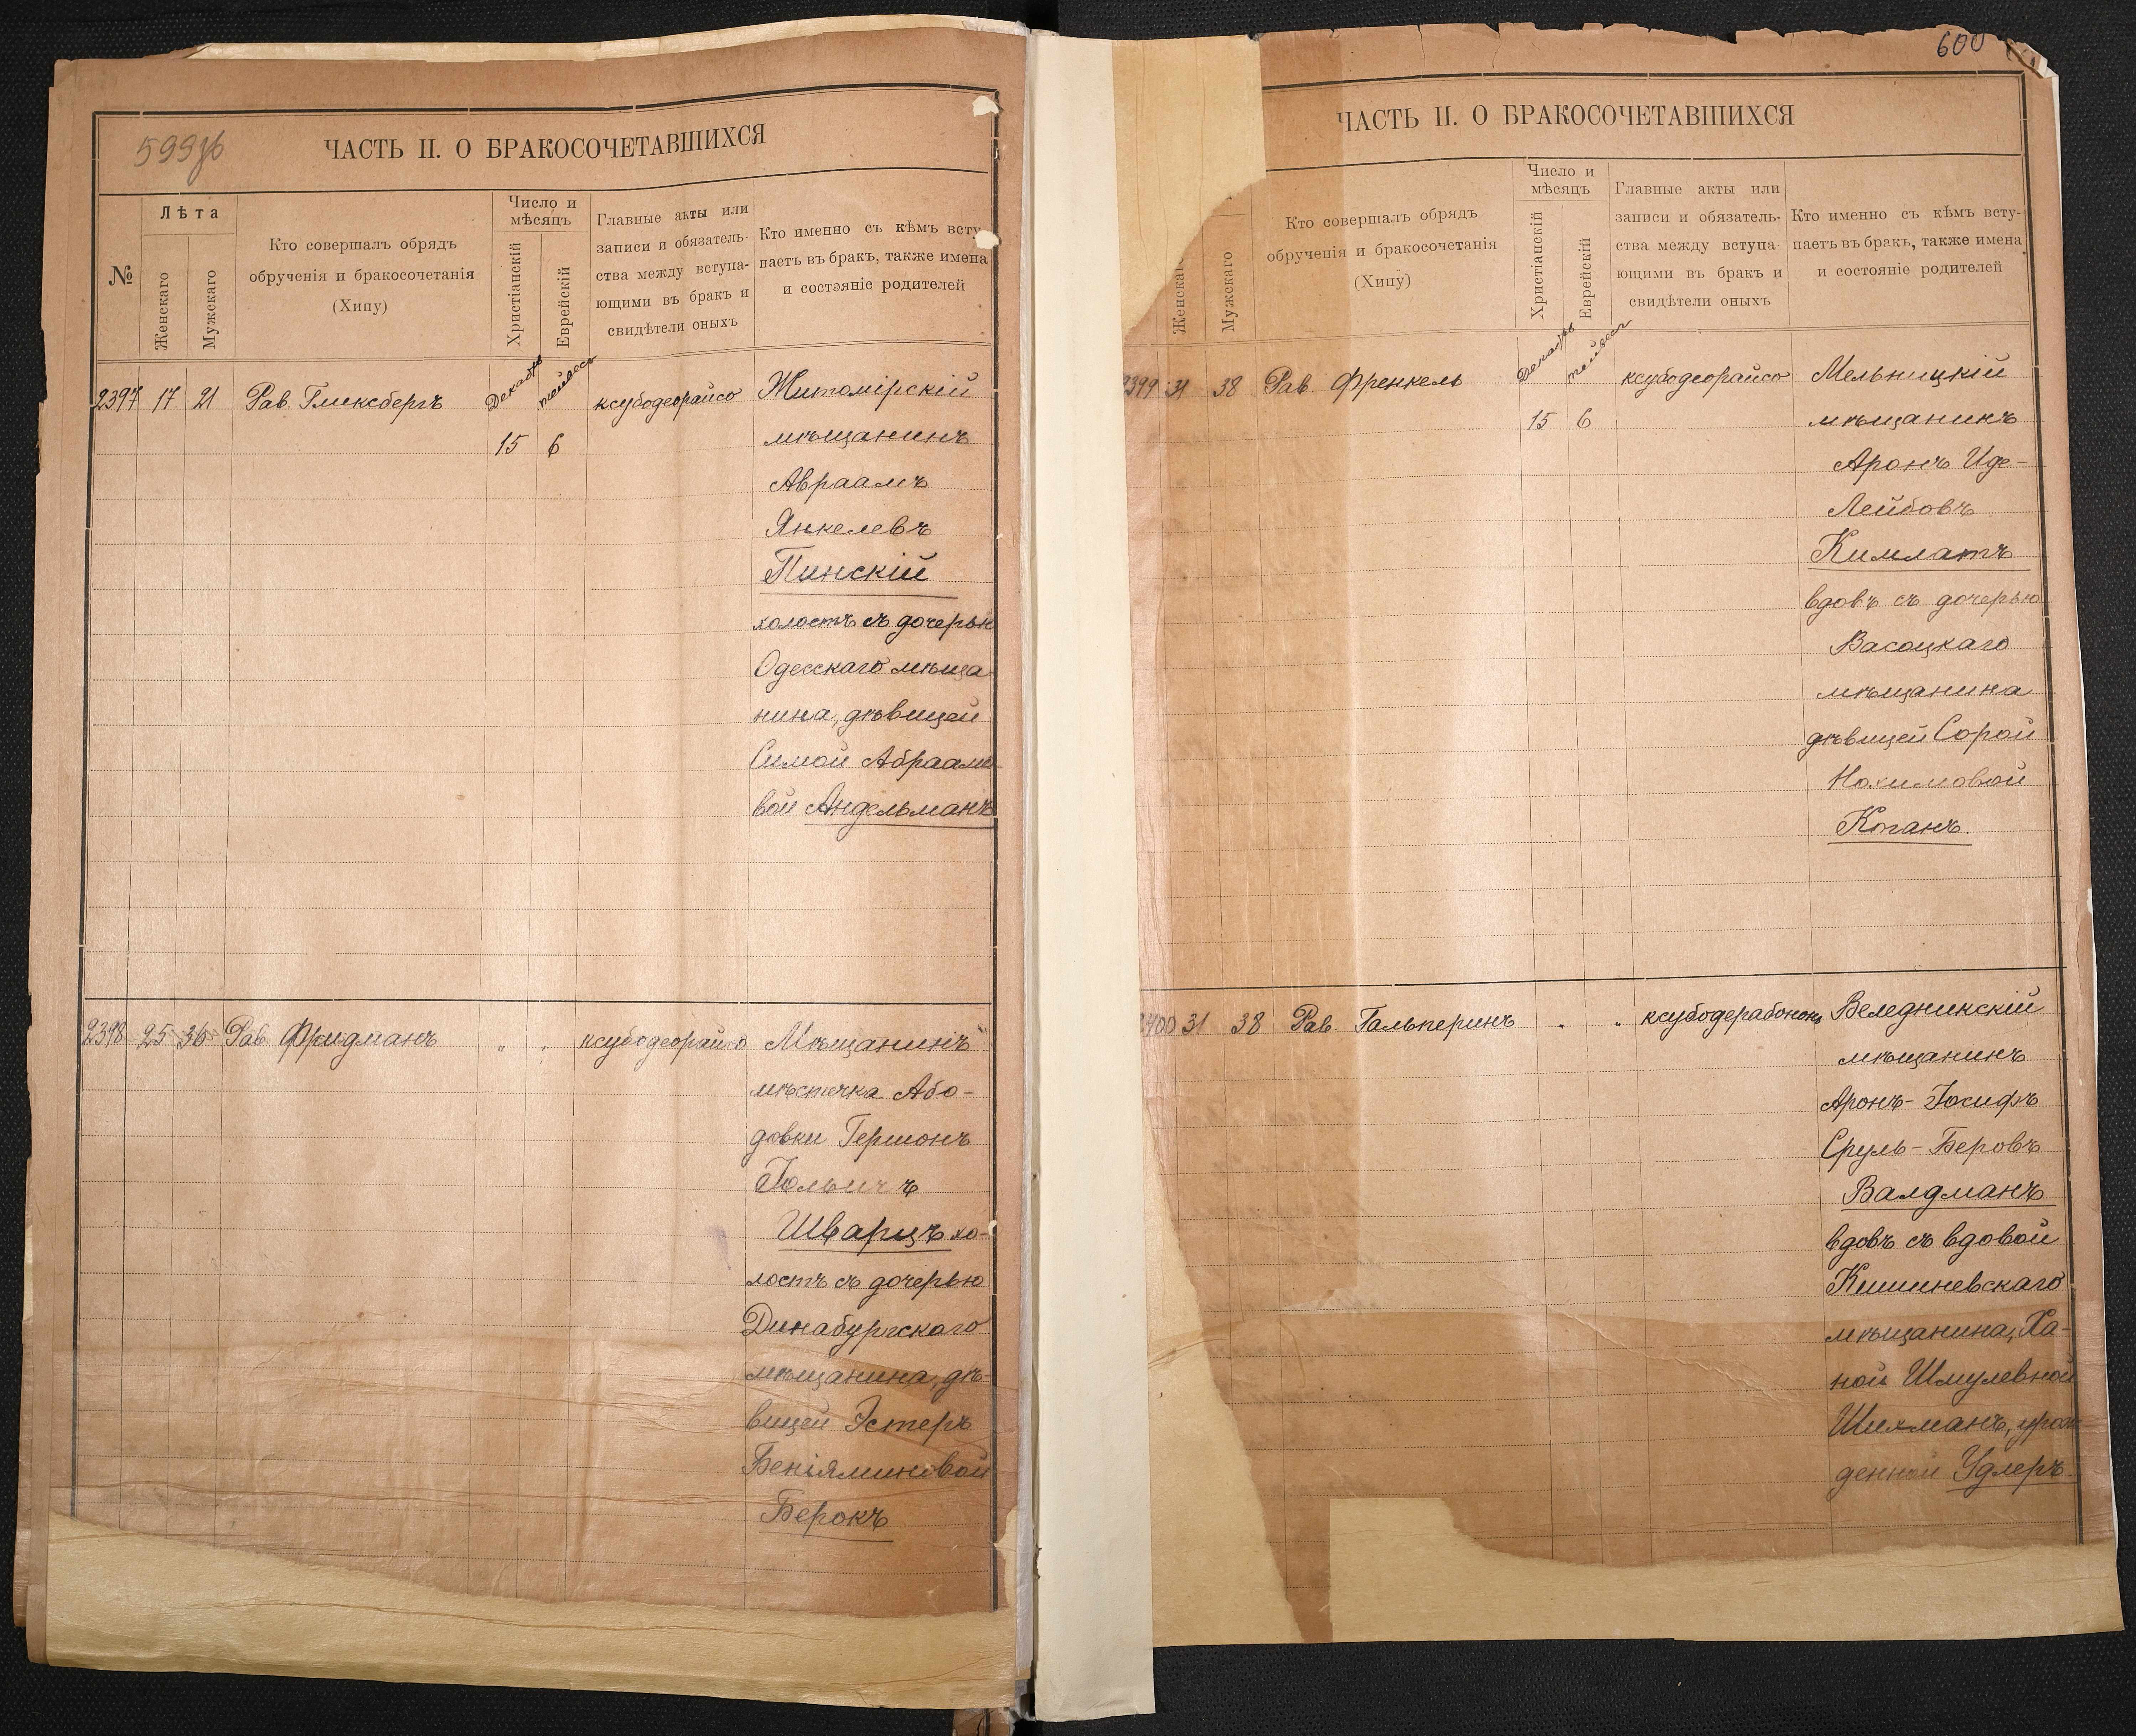 599об
ЧАСТЬ II. О БРАКОСОЧЕТАВШИХСЯ
№
Лѣта
Женскаго
Мужскаго
Кто совершалъ обрядъ
обрученія и бракосочетанія
(Хипу)
Число и
мѣсяцъ
Христіанскій
Еврейскій
Главные акты или
записи и обязатель-
ства между вступа-
ющими въ бракъ и
свидѣтели оныхъ
Кто именно съ кѣмъ всту-
паетъ въ бракъ, также имена
и состояніе родителей
2397 17 21 Рав. Гликсбергъ Декабрь тейвесъ ксубодеорайсо Житомірскій
15 6 мѣщанинъ
Авраамъ
Янкелевъ
Пинскій
холостъ съ дочерью
Одесскаго мѣща
нина, дѣвицей
Симой Абраамо
вой Андельманъ
2398 25 36 Рав. Фридманъ " " ксубодеорайсо Мѣщанинъ
мѣстечка Або-
довки Гершонъ
Шварцъ хо-
лостъ съ дочерью
Динабургскаго
мѣщанина, дѣ-
вицей Эстеръ
Беніяминовой
Берокъ
600
ЧАСТЬ II. О БРАКОСОЧЕТАВШИХСЯ
Женскаго
Мужскаго
Кто совершалъ обрядъ
обрученія и бракосочетанія
(Хипу)
Число и
мѣсяцъ
Христіанскій
Еврейскій
Главные акты или
записи и обязатель-
ства между вступа-
ющими въ бракъ и
свидѣтели оныхъ
Кто именно съ кѣмъ всту-
паетъ въ бракъ, также имена
и состояніе родителей
2399 31 38 Рав. Френкель Декабрь тейвесъ ксубодеорайсо Мельницкій
15 6 мѣщанинъ
Аронъ Иде-
Лейбовъ
Кимлатъ
вдовъ съ дочерью
Васоцкаго
мѣщанина
дѣвицей Сорой
Нохимовой
Коганъ.
2400 31 38 Рав. Гальперинъ " " ксубодерабононъ Веледникскій
мѣщанинъ
Аронъ-Іосифъ
Сруль-Беровъ
Валдманъ
вдовъ съ вдовой
Кишиневскаго
мѣщанина, Ха-
ной Шмулевной
Шихманъ, урож
денной Удлеръ.